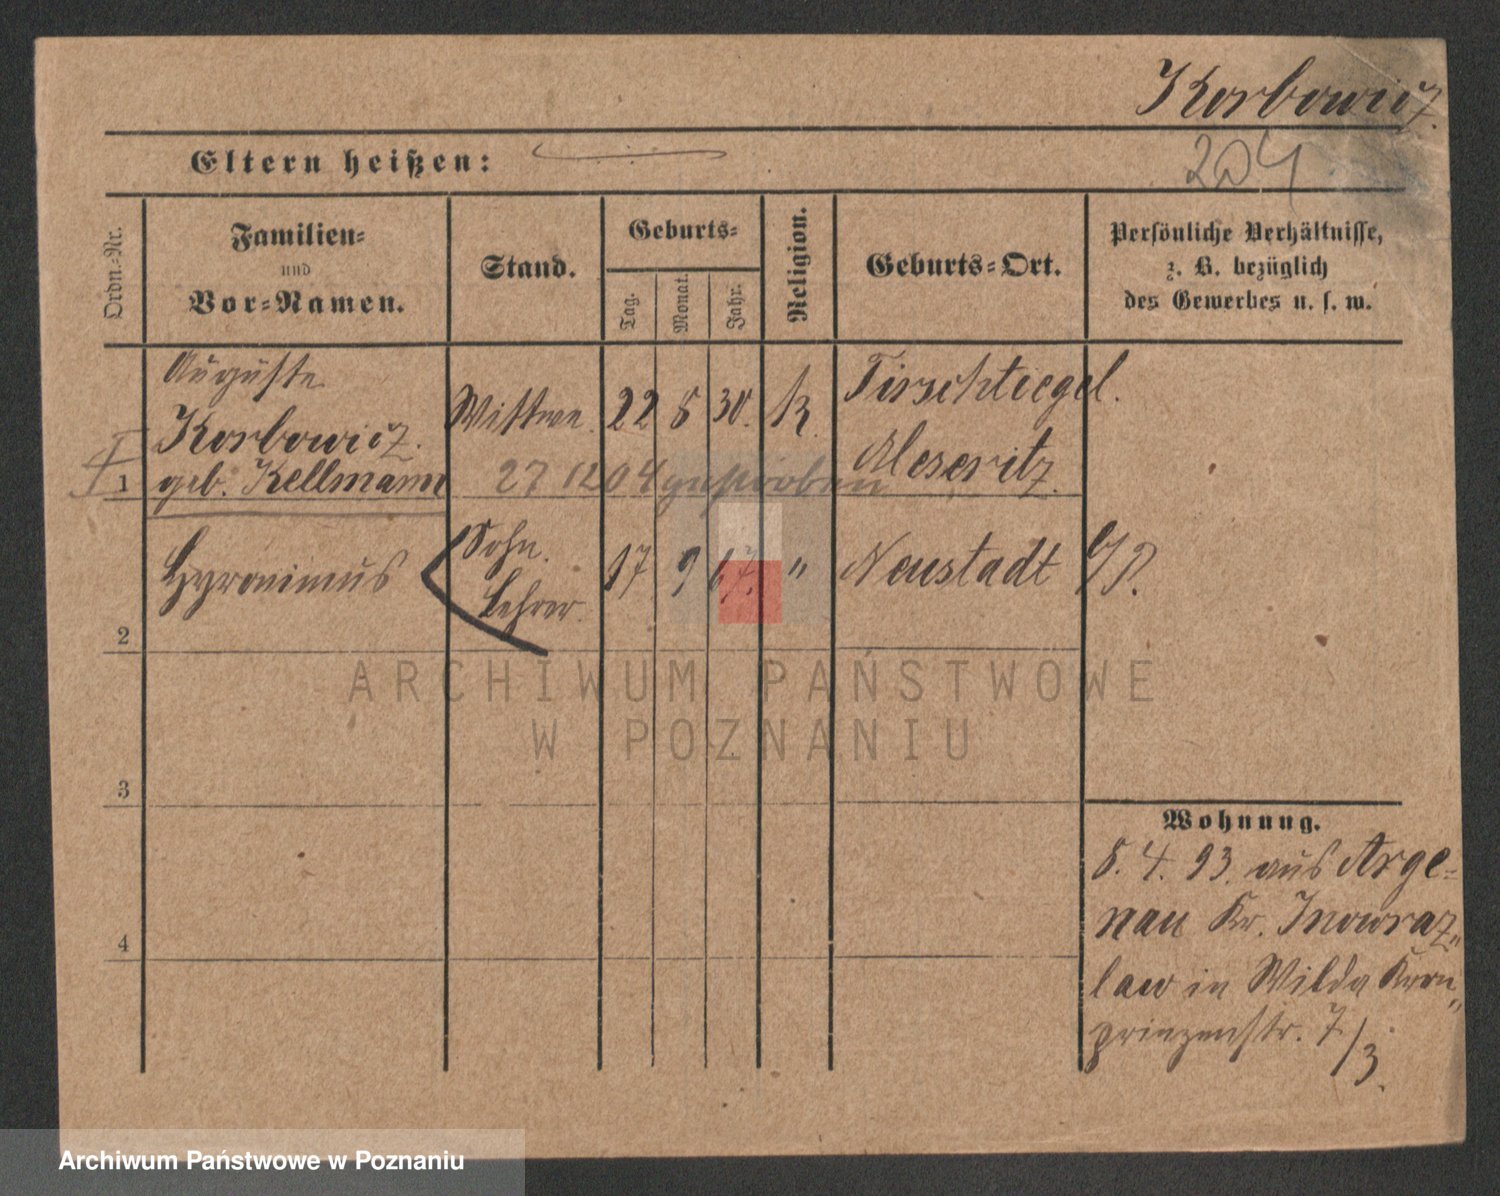 Korbowicz.
Eltern heißen:
204
Ordn.-Nr.
Familien-
und
Vor-Namen.
Stand.
Geburts-
Tag.
Monat.
Jahr.
Religion.
Geburts-Ort.
Persönliche Verhältnisse,
z. B. bezüglich
des Gewerbes u. s. w.
Auguste
Korbowicz.
geb. Kellmann
1
Wittwe.
22 8 30. K.
Tirschtiegel.
Meseritz.
27 12 04 gestorben
Hyronimus
2
Sohn.
Lehrer.
17 9 67. "
Neustadt
3
4
Wohnung.
8. 4. 93. aus Arge-
nau Kr. Inowraz"
law in Wilda Kron"
prinzenstr. 7/3.
ARCHIWUM PAŃSTWOWE
W POZNANIU
Archiwum Państwowe w Poznaniu